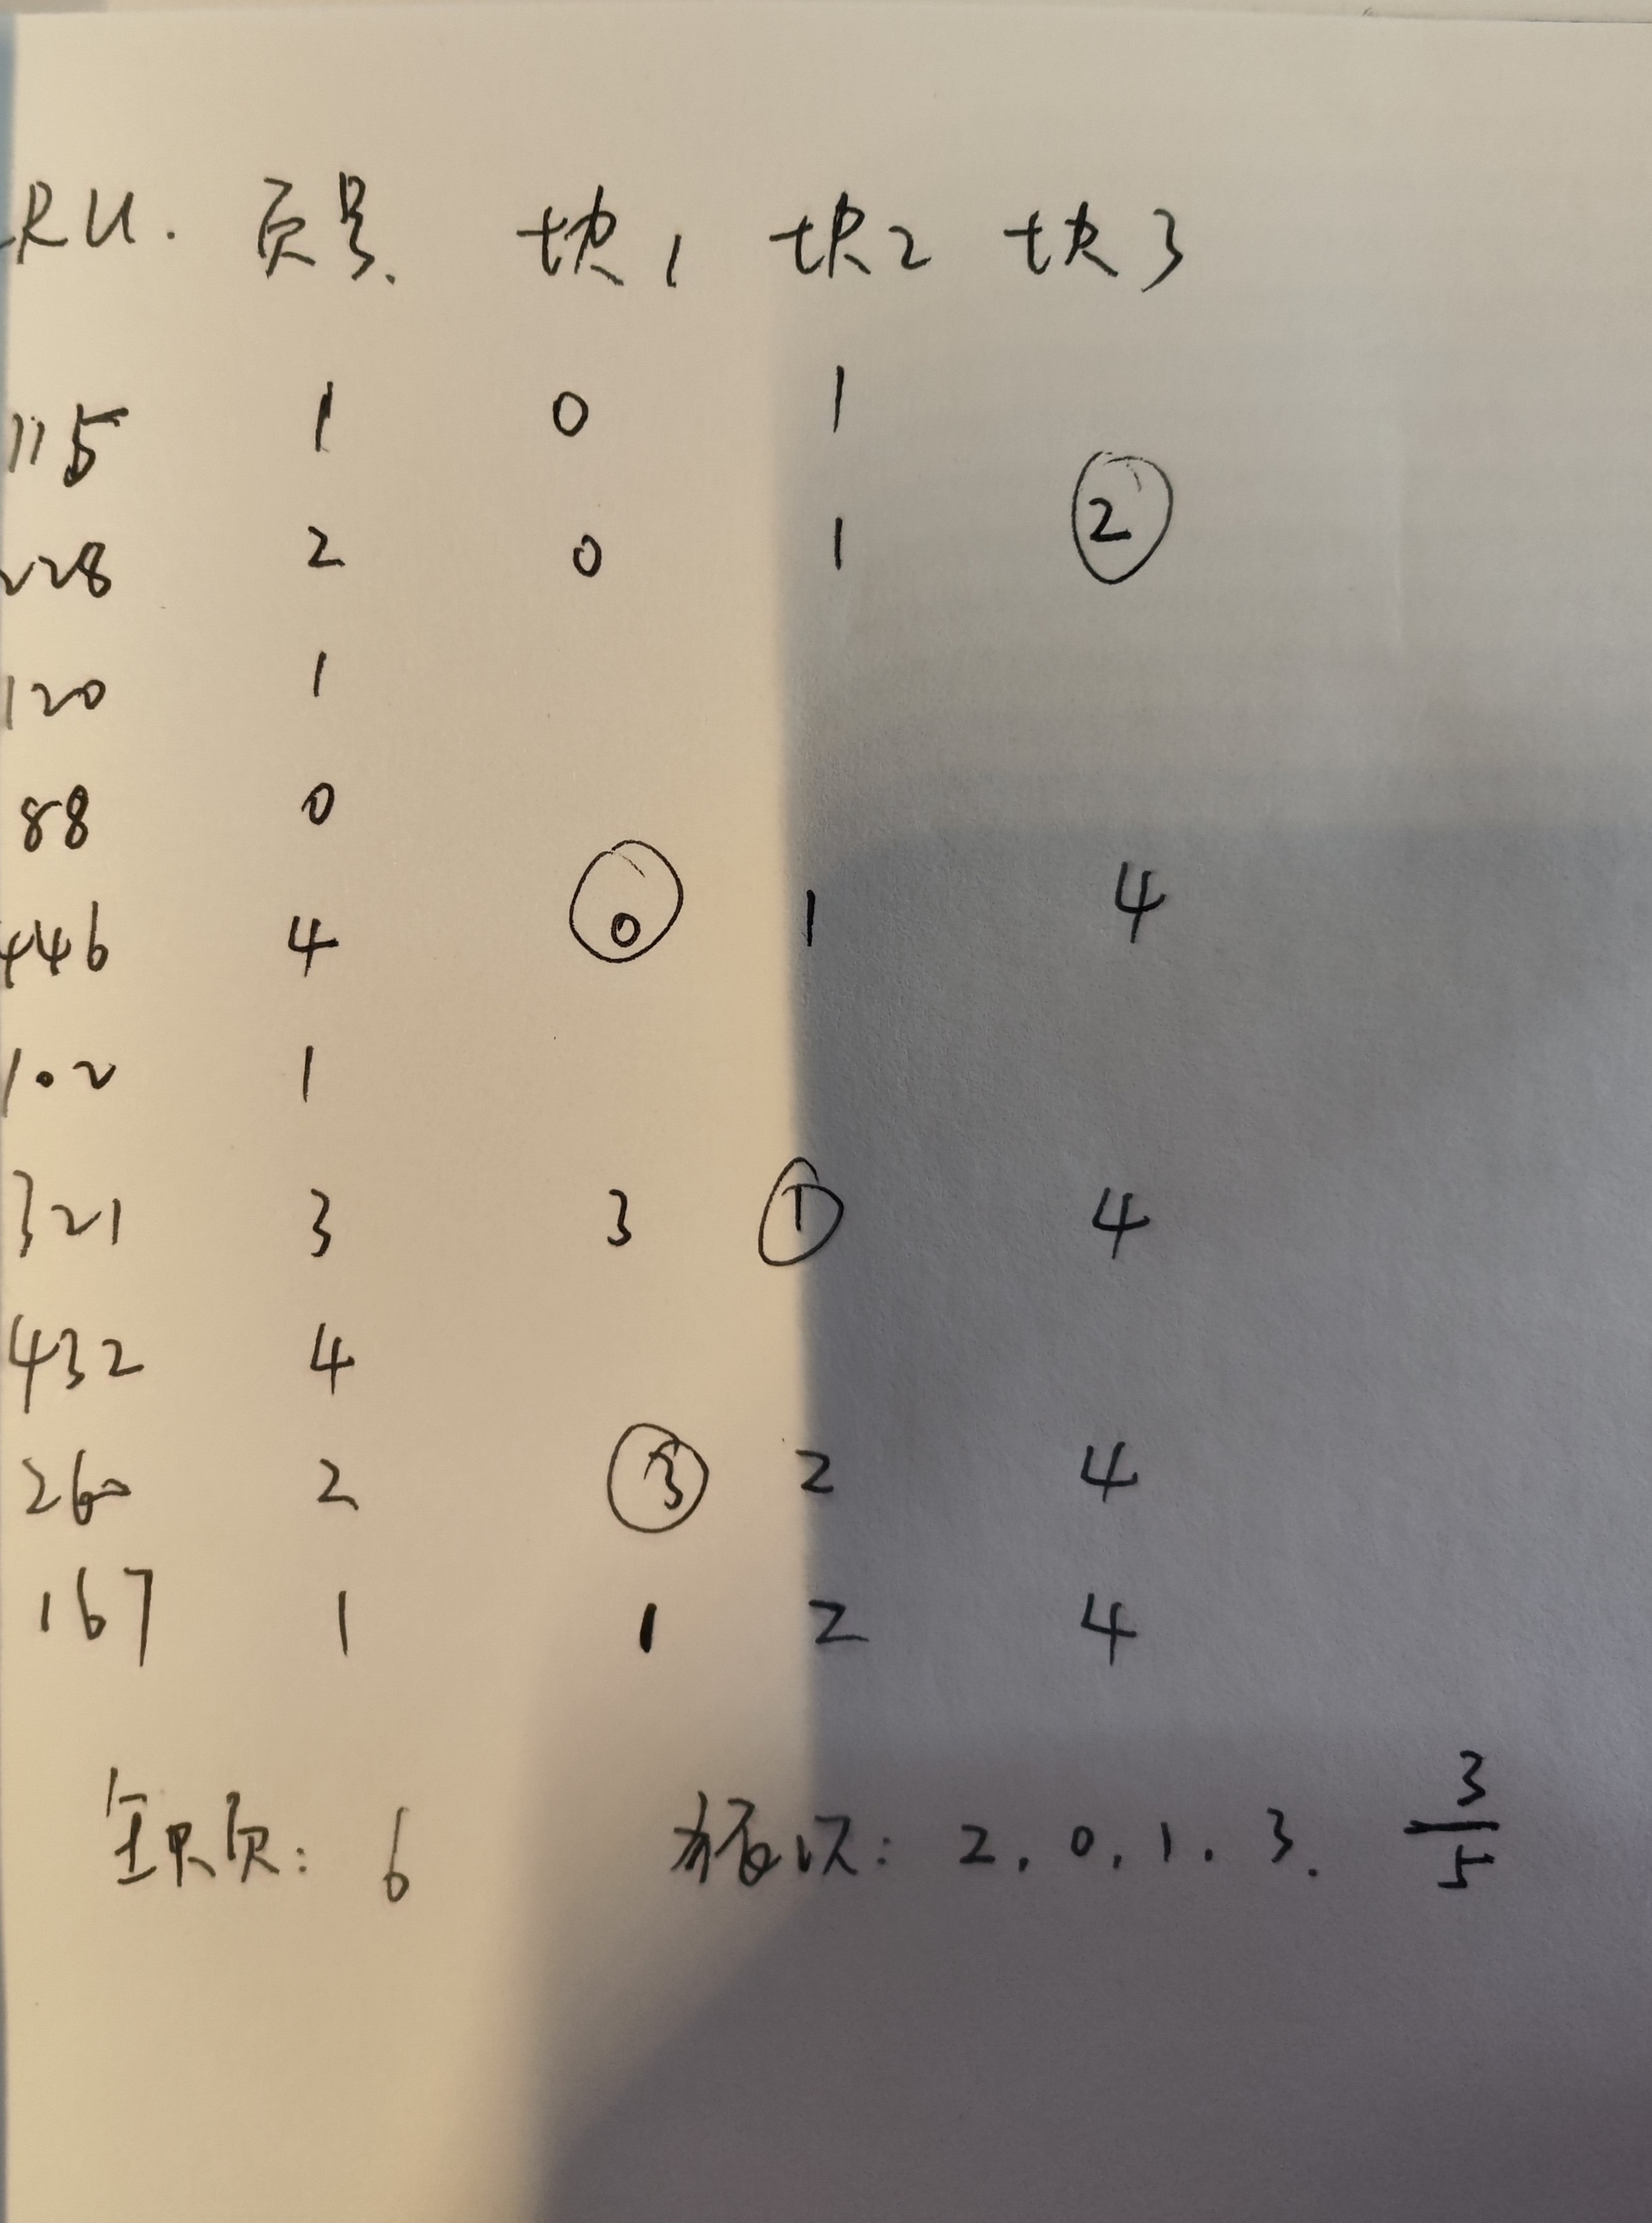 LRU. 页号. 块1 块2 块3
115 1 0 1
228 2 0 1 2
120 1
88 0
446 4 0 1 4
102 1
321 3 3 1 4
432 4
260 2 3 2 4
167 1 1 2 4
缺页: 6 依次: 2. 0. 1. 3. 3/5